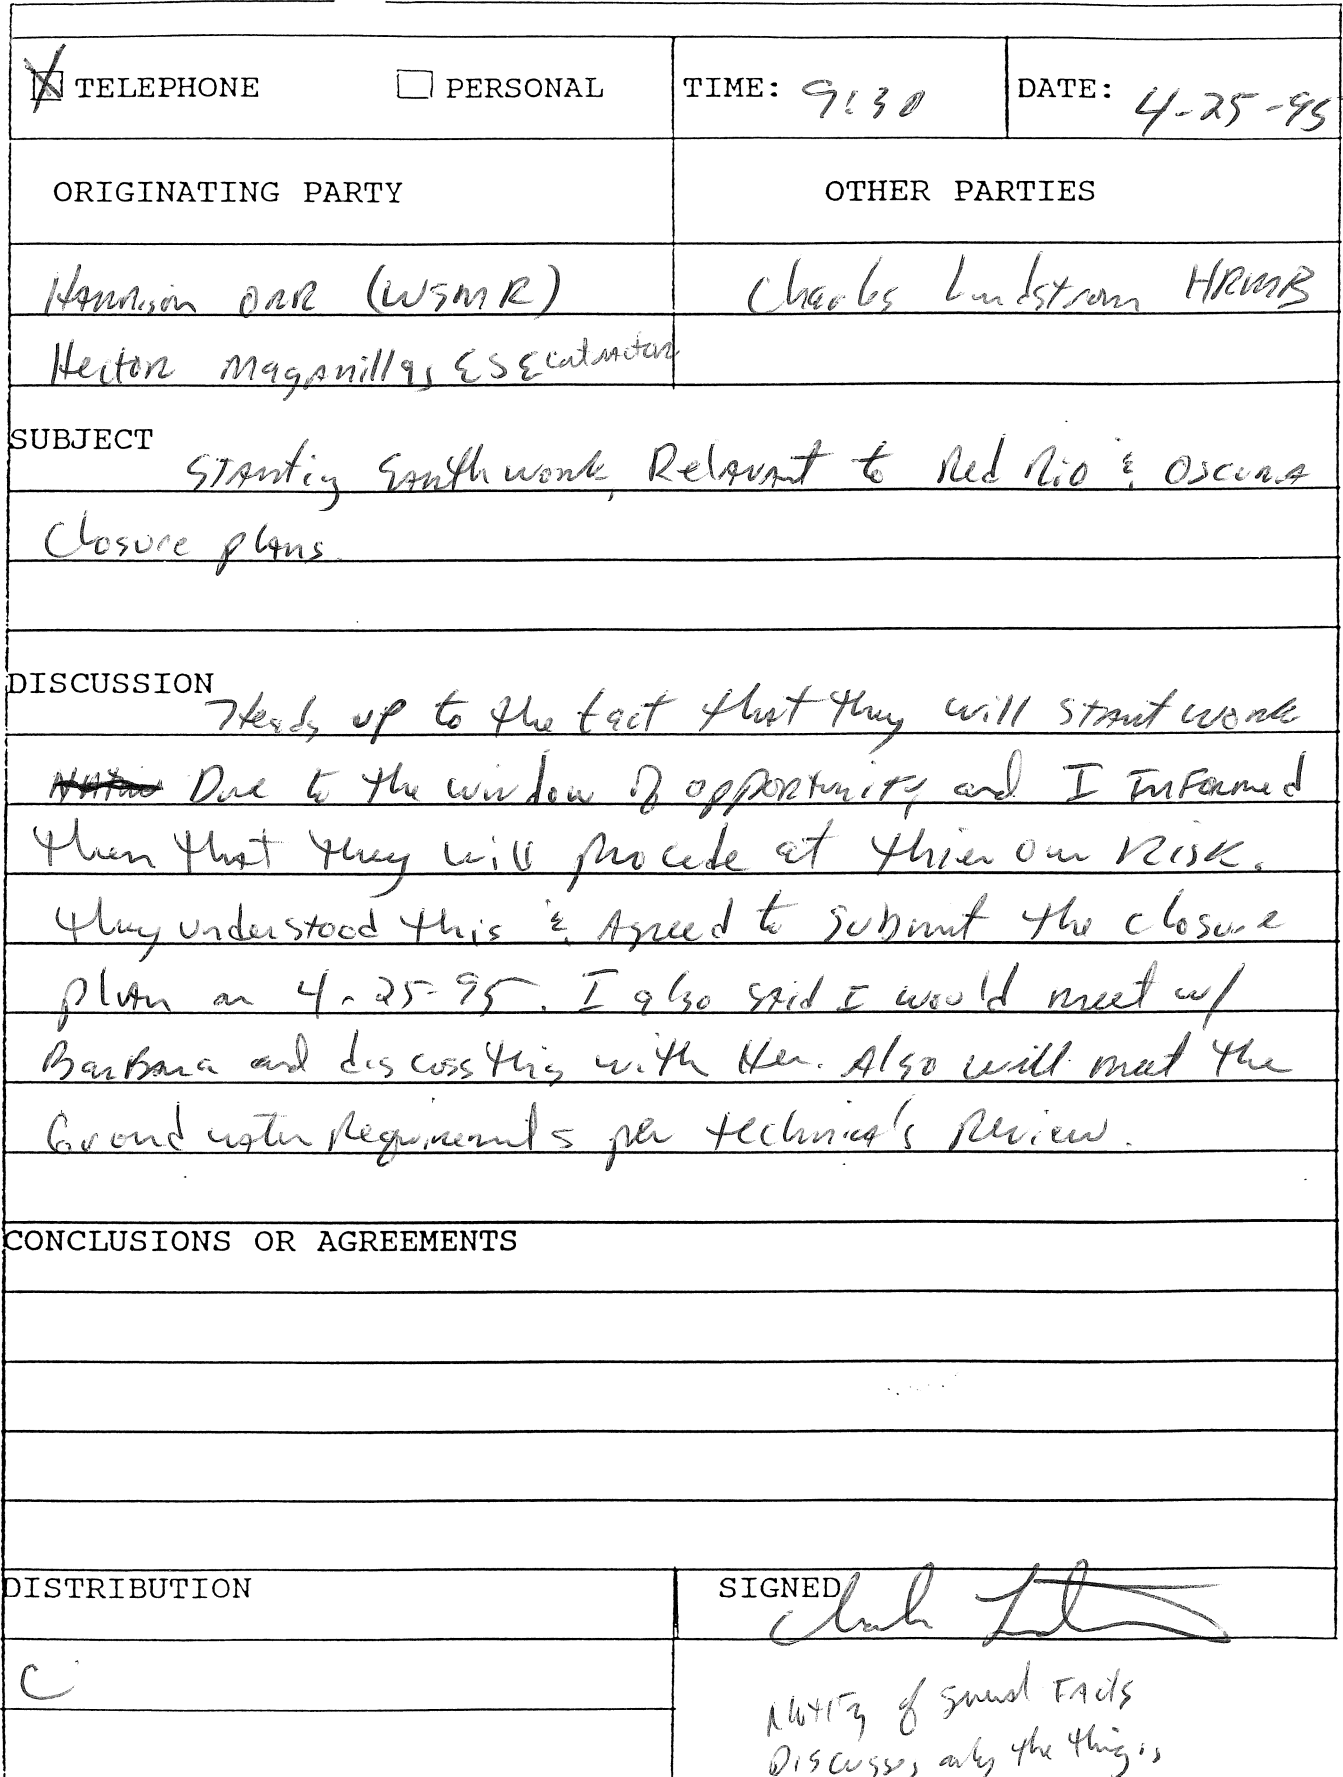 TELEPHONE PERSONAL TIME: 9:30 DATE: 4-25-95
ORIGINATING PARTY OTHER PARTIES
Harrison Orr (WSMR) Charles Lundstrom HRMB
Hector Maganillas ESE
SUBJECT
Starting Earthwork, Relavant to Red Rio & Oscura
Closure plans.
DISCUSSION
Heads up to the fact that they will start work
Due to the window of opportunity and I Informed
them that they will procede at thier own Risk.
they understood this & Agreed to submit the closure
plan on 4-25-95. I also said I would meet w/
Barbara and discuss this with Her. Also will meet the
Groundwater Requirements per technical's Review.
CONCLUSIONS OR AGREEMENTS
DISTRIBUTION SIGNED
C
of Facts
only the